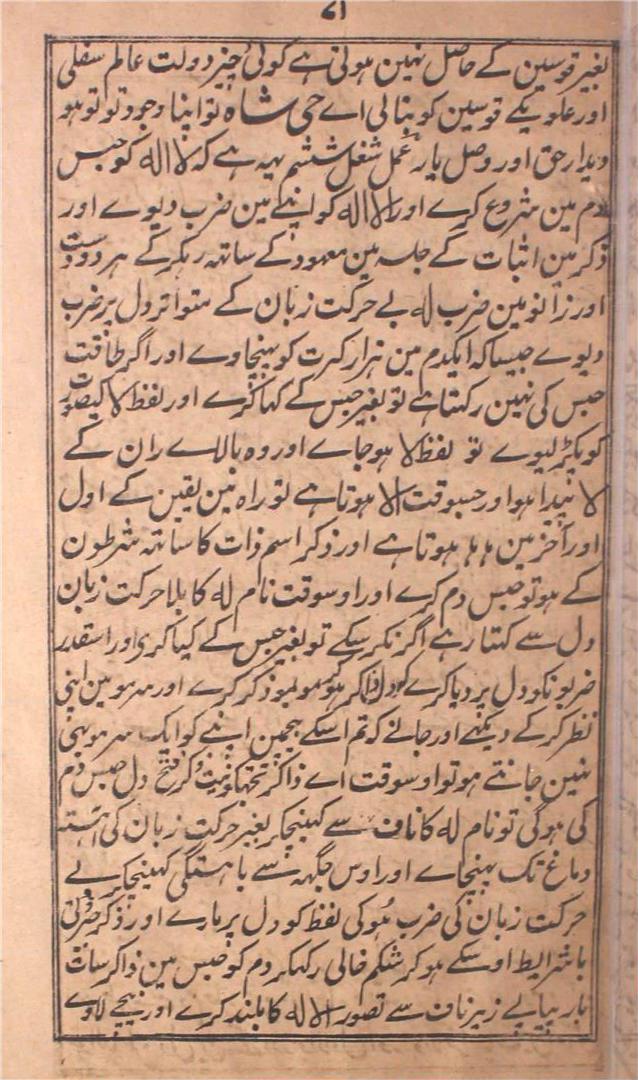 ۷۱
بغیر قوسین کے حاصل نہین ہوتی ہے کوئی چیز دولت عالم سفلی
اور علویکے قوسین کو بنالی اے حی شاہ تو اپنا وجود تو تو ہو
دیدار حق اور وصل یار عمل شغل ششم یہہ ہے کہ لا الہ کو حبس
دم مین شروع کرے اور الا اللہ کو اپنے مین ضرب دیوے اور
ذکر مین اثبات کے جلسہ مین معہود کے ساتہہ رہکر کے ہر دو دست
اور زانو مین ضرب لہ بے حرکت زبان کے متواتر دل پر ضرب
دیوے جیسا کہ ایکدم مین ہزار کرت کو پہنچاوے اور اگر طاقت
حبس کی نہین رکہتا ہے تو بغیر حبس کے کہا کرے اور لفظ لا کیصورت
کو پکڑ لیوے تو لفظ لا ہو جاے اور وہ بالاے ران کے
لا پیدا ہوا اور جسوقت الا ہوتا ہے تو راہ مین یقین کے اول
اور آخر مین ہلہلہ ہوتا ہے اور ذکر اسم ذات کا ساتہہ شرطون
کے ہو تو حبس دم کرے اور اوسوقت نام لہ کا بلا حرکت زبان
دل سے کہتا رہے اگر نکر سکے تو بغیر حبس کے کیا کری اور اسقدر
ضربونکو دل پر دیا کرے کہ دل ذاکر ہو کر موبمو ذکر کرے اور سرمو مین اپنی
نظر کر کے دیکہے اور جانے کہ تم اسکے بیچمین اپنے کو ایک سرمو بہی
نہین جانتے ہو تو اوسوقت اے ذاکر تجہکو نیت ذکر فتح دل حبس دم
کی ہوگی تو نام لہ کا ناف سے کہینچکر بغیر حرکت زبان کی آہستہ
دماغ تک پہنچاے اور اوس جگہہ سے باہستگی کہینچکر بے
حرکت زبان کی ضرب ہو کی لفظ کو دل پر مارے اور ذکر
باشرایط اوسکے ہو کر شکم خالی رکہکر دم کو حبس مین ذاکر سات
بار پیاپے زیر ناف سے تصور الا لہ کا بلند کرے اور نیچے لاوے